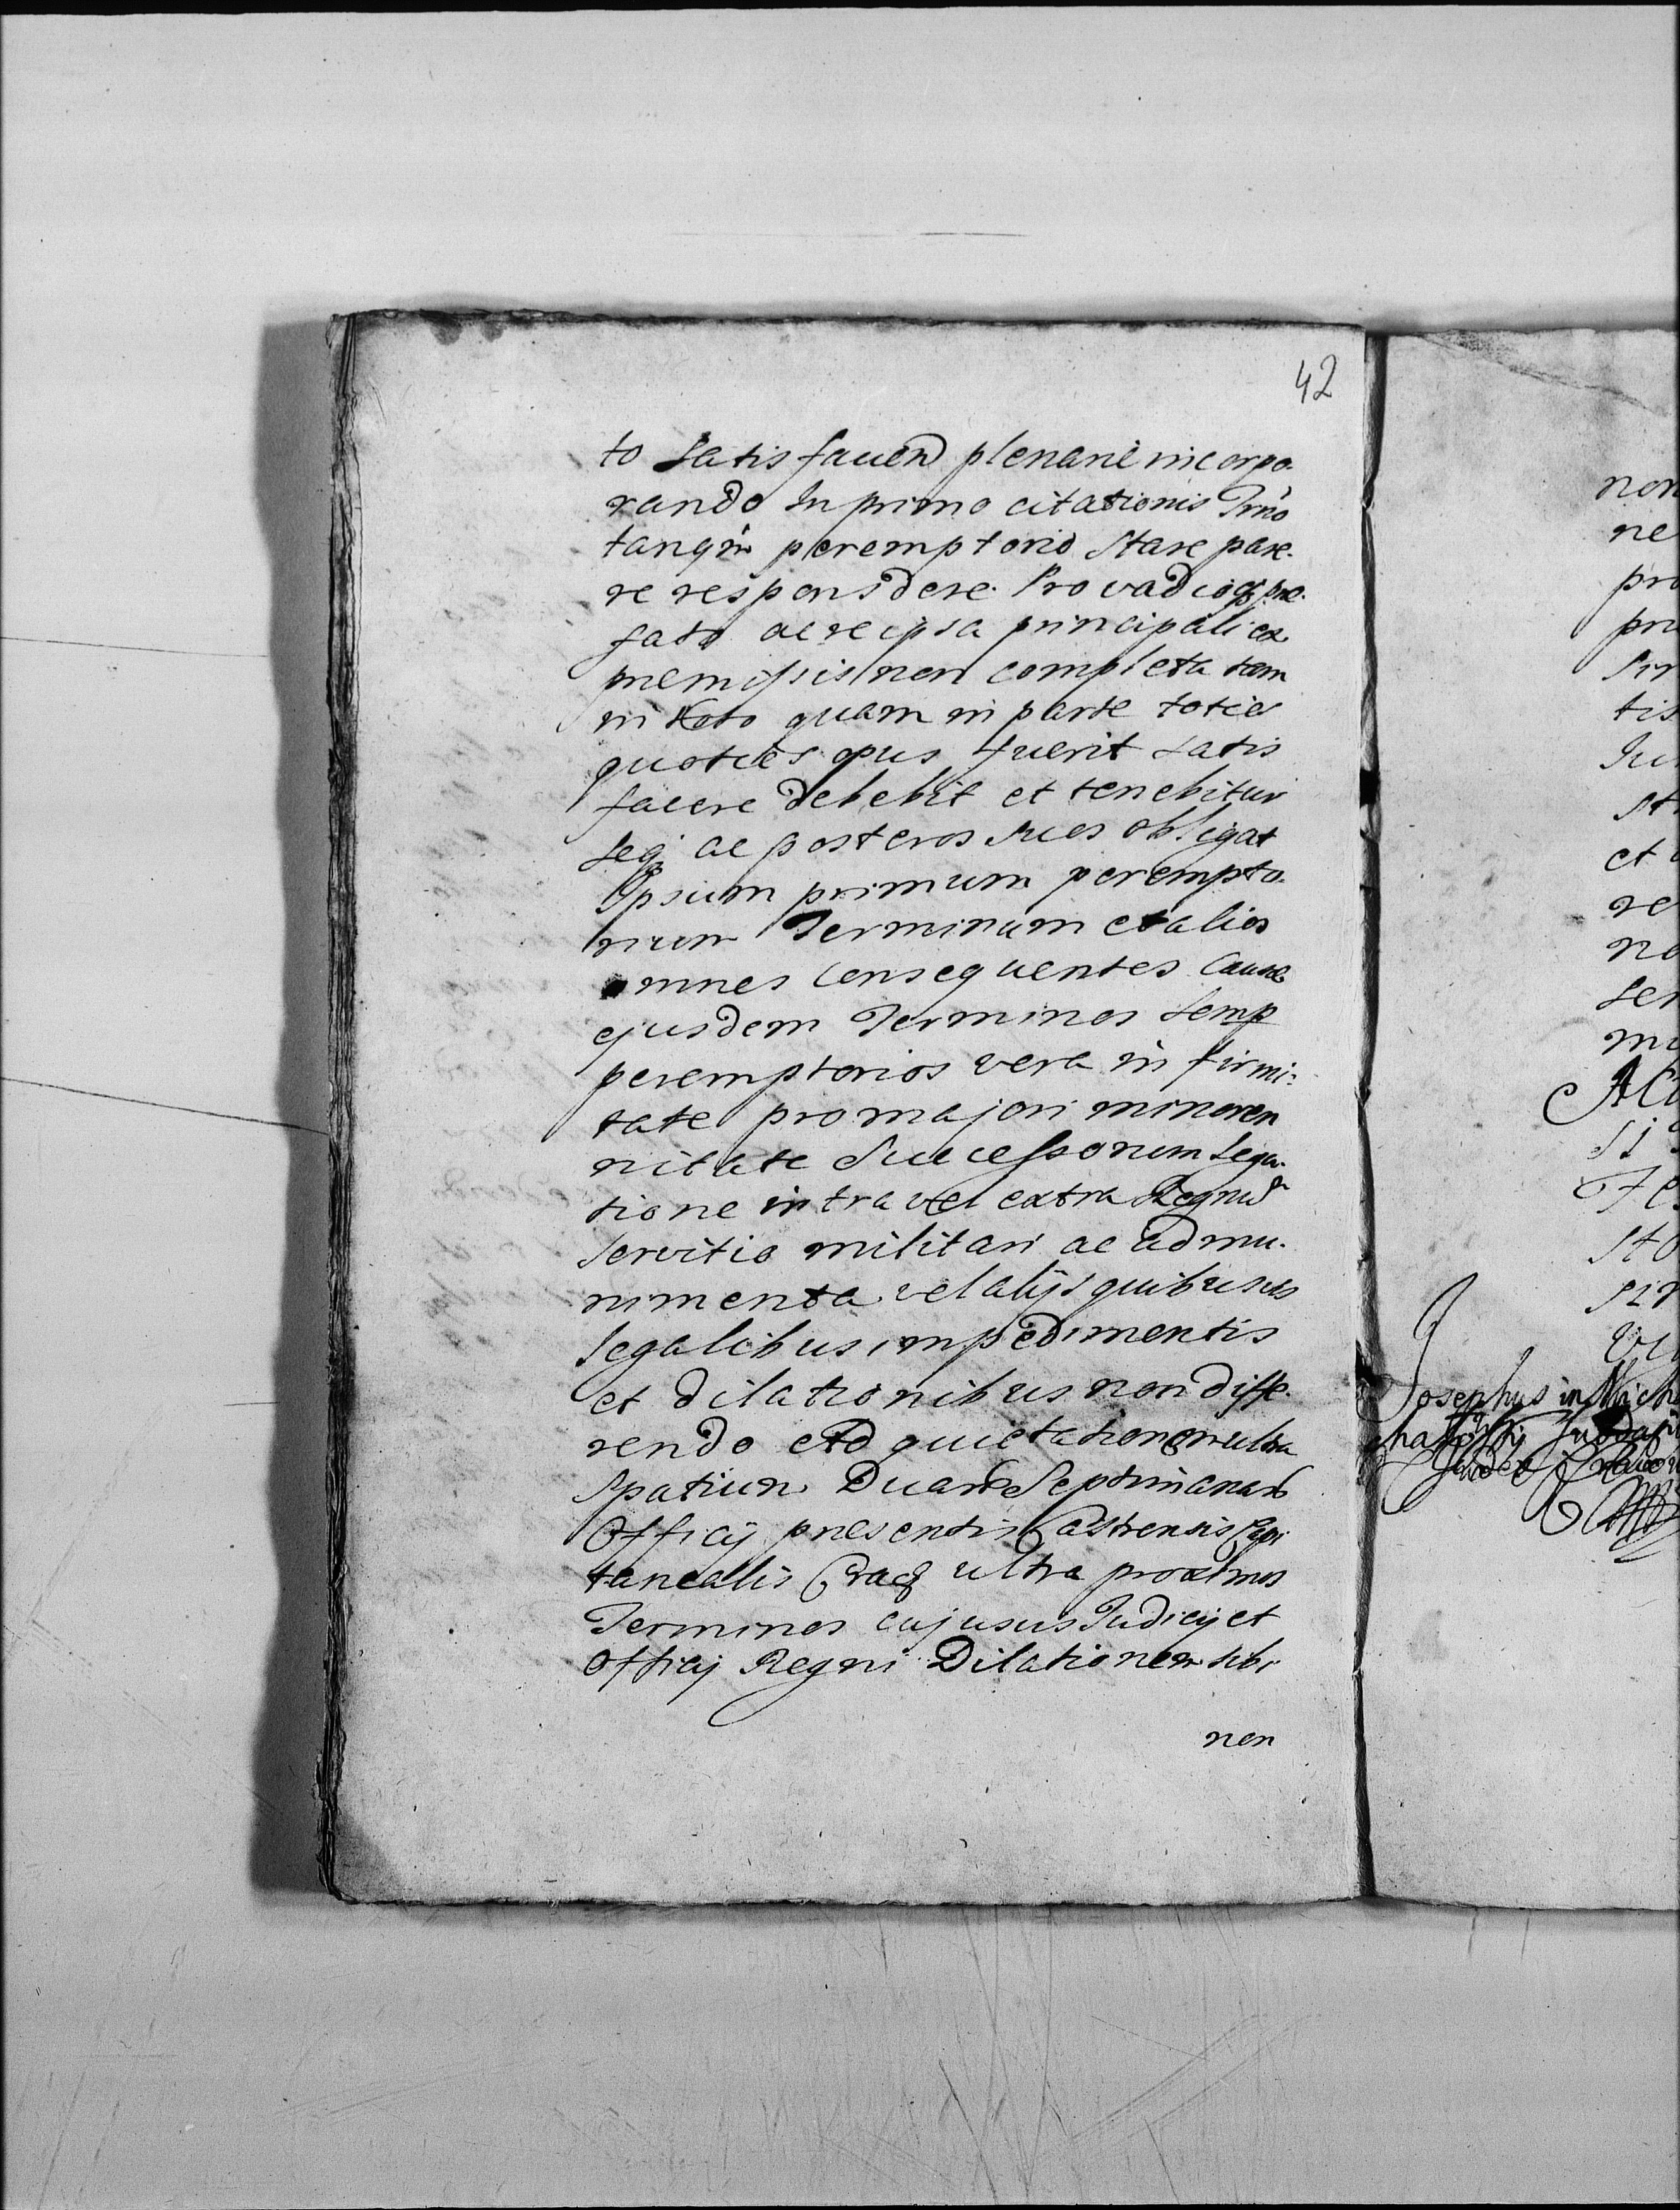 42
to satis facien plenarie incorpo.
rando In primo citationis Trno
tanqm peremptorio stare pare.
re responsdere. Pro vadioq pre.
fato ac re ipsa principali ex
premissis non completa tam
in toto quam in parte toties
quoties opus fuerit satis
facere debebit et tenebitur
seq ac posteros suos obligat
Ipsum primum perempto.
rium Terminum et alios
omnes consequentes Causae
ejusdem Terminos semp
peremptorios vera in firmi:
tate pro majori minoren
nitate Successorum lega.
tione intra vel extra Regnu
servitio militari ac ad mu.
nimenta vel alijs quibusvis
legalibus impedimentis
et dilationibus non diffe.
rendo Ad quietationem ultra
spatium Duar Septimanar
Officij presentis Castrensis Capi
tanealis Crac ultra proximos
Terminos cujusvis Judicij et
Officij Regni Dilationem sibi
non
non
ne
pro
pri
tis
et
re
no
ser
Josephus in Mich
Judex